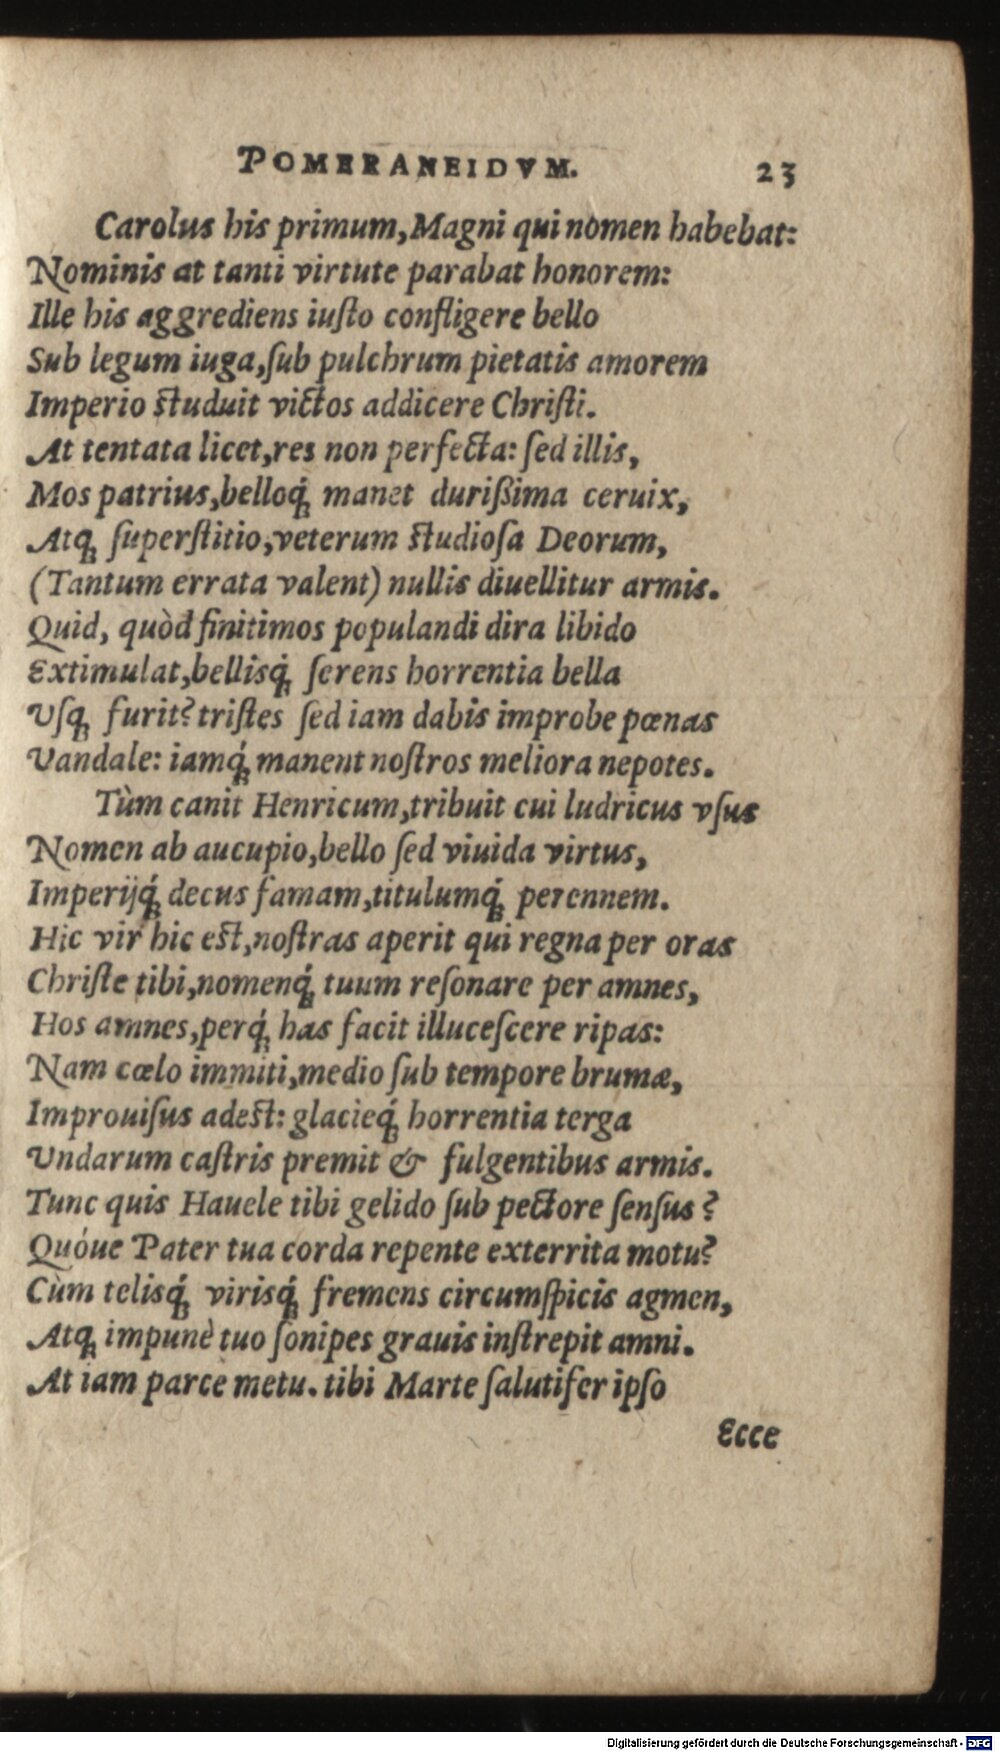 POMERANEIDVM. 23
Carolus his primum, Magni qui nomen habebat:
Nominis at tanti virtute parabat honorem:
Ille his aggrediens iuſto confligere bello
Sub legum iuga, ſub pulchrum pietatis amorem
Imperio ſtuduit victos addicere Chriſti.
At tentata licet, res non perfecta: ſed illis,
Mos patrius, belloq́; manet durißima ceruix,
Atq; ſuperſtitio, veterum ſtudioſa Deorum,
(Tantum errata valent) nullis diuellitur armis.
Quid, quòd finitimos populandi dira libido
Extimulat, bellisq́; ſerens horrentia bella
Vſq; furit? triſtes ſed iam dabis improbe pœnas
Vandale: iamq́; manent noſtros meliora nepotes.
Tùm canit Henricum, tribuit cui ludricus vſus
Nomen ab aucupio, bello ſed viuida virtus,
Imperijq́; decus famam, titulumq́; perennem.
Hic vir hic eſt, noſtras aperit qui regna per oras
Chriſte tibi, nomenq́; tuum reſonare per amnes,
Hos amnes, perq́; has facit illuceſcere ripas:
Nam cœlo immiti, medio ſub tempore brumæ,
Improuiſus adeſt: glacieq́; horrentia terga
Vndarum caſtris premit & fulgentibus armis.
Tunc quis Hauele tibi gelido ſub pectore ſenſus?
Quóue Pater tua corda repente exterrita motu?
Cùm telisq́; virisq́; fremens circumſpicis agmen,
Atq; impunè tuo ſonipes grauis inſtrepit amni.
At iam parce metu. tibi Marte ſalutifer ipſo
Ecce
Digitalisierung gefördert durch die Deutsche Forschungsgemeinschaft - DFG